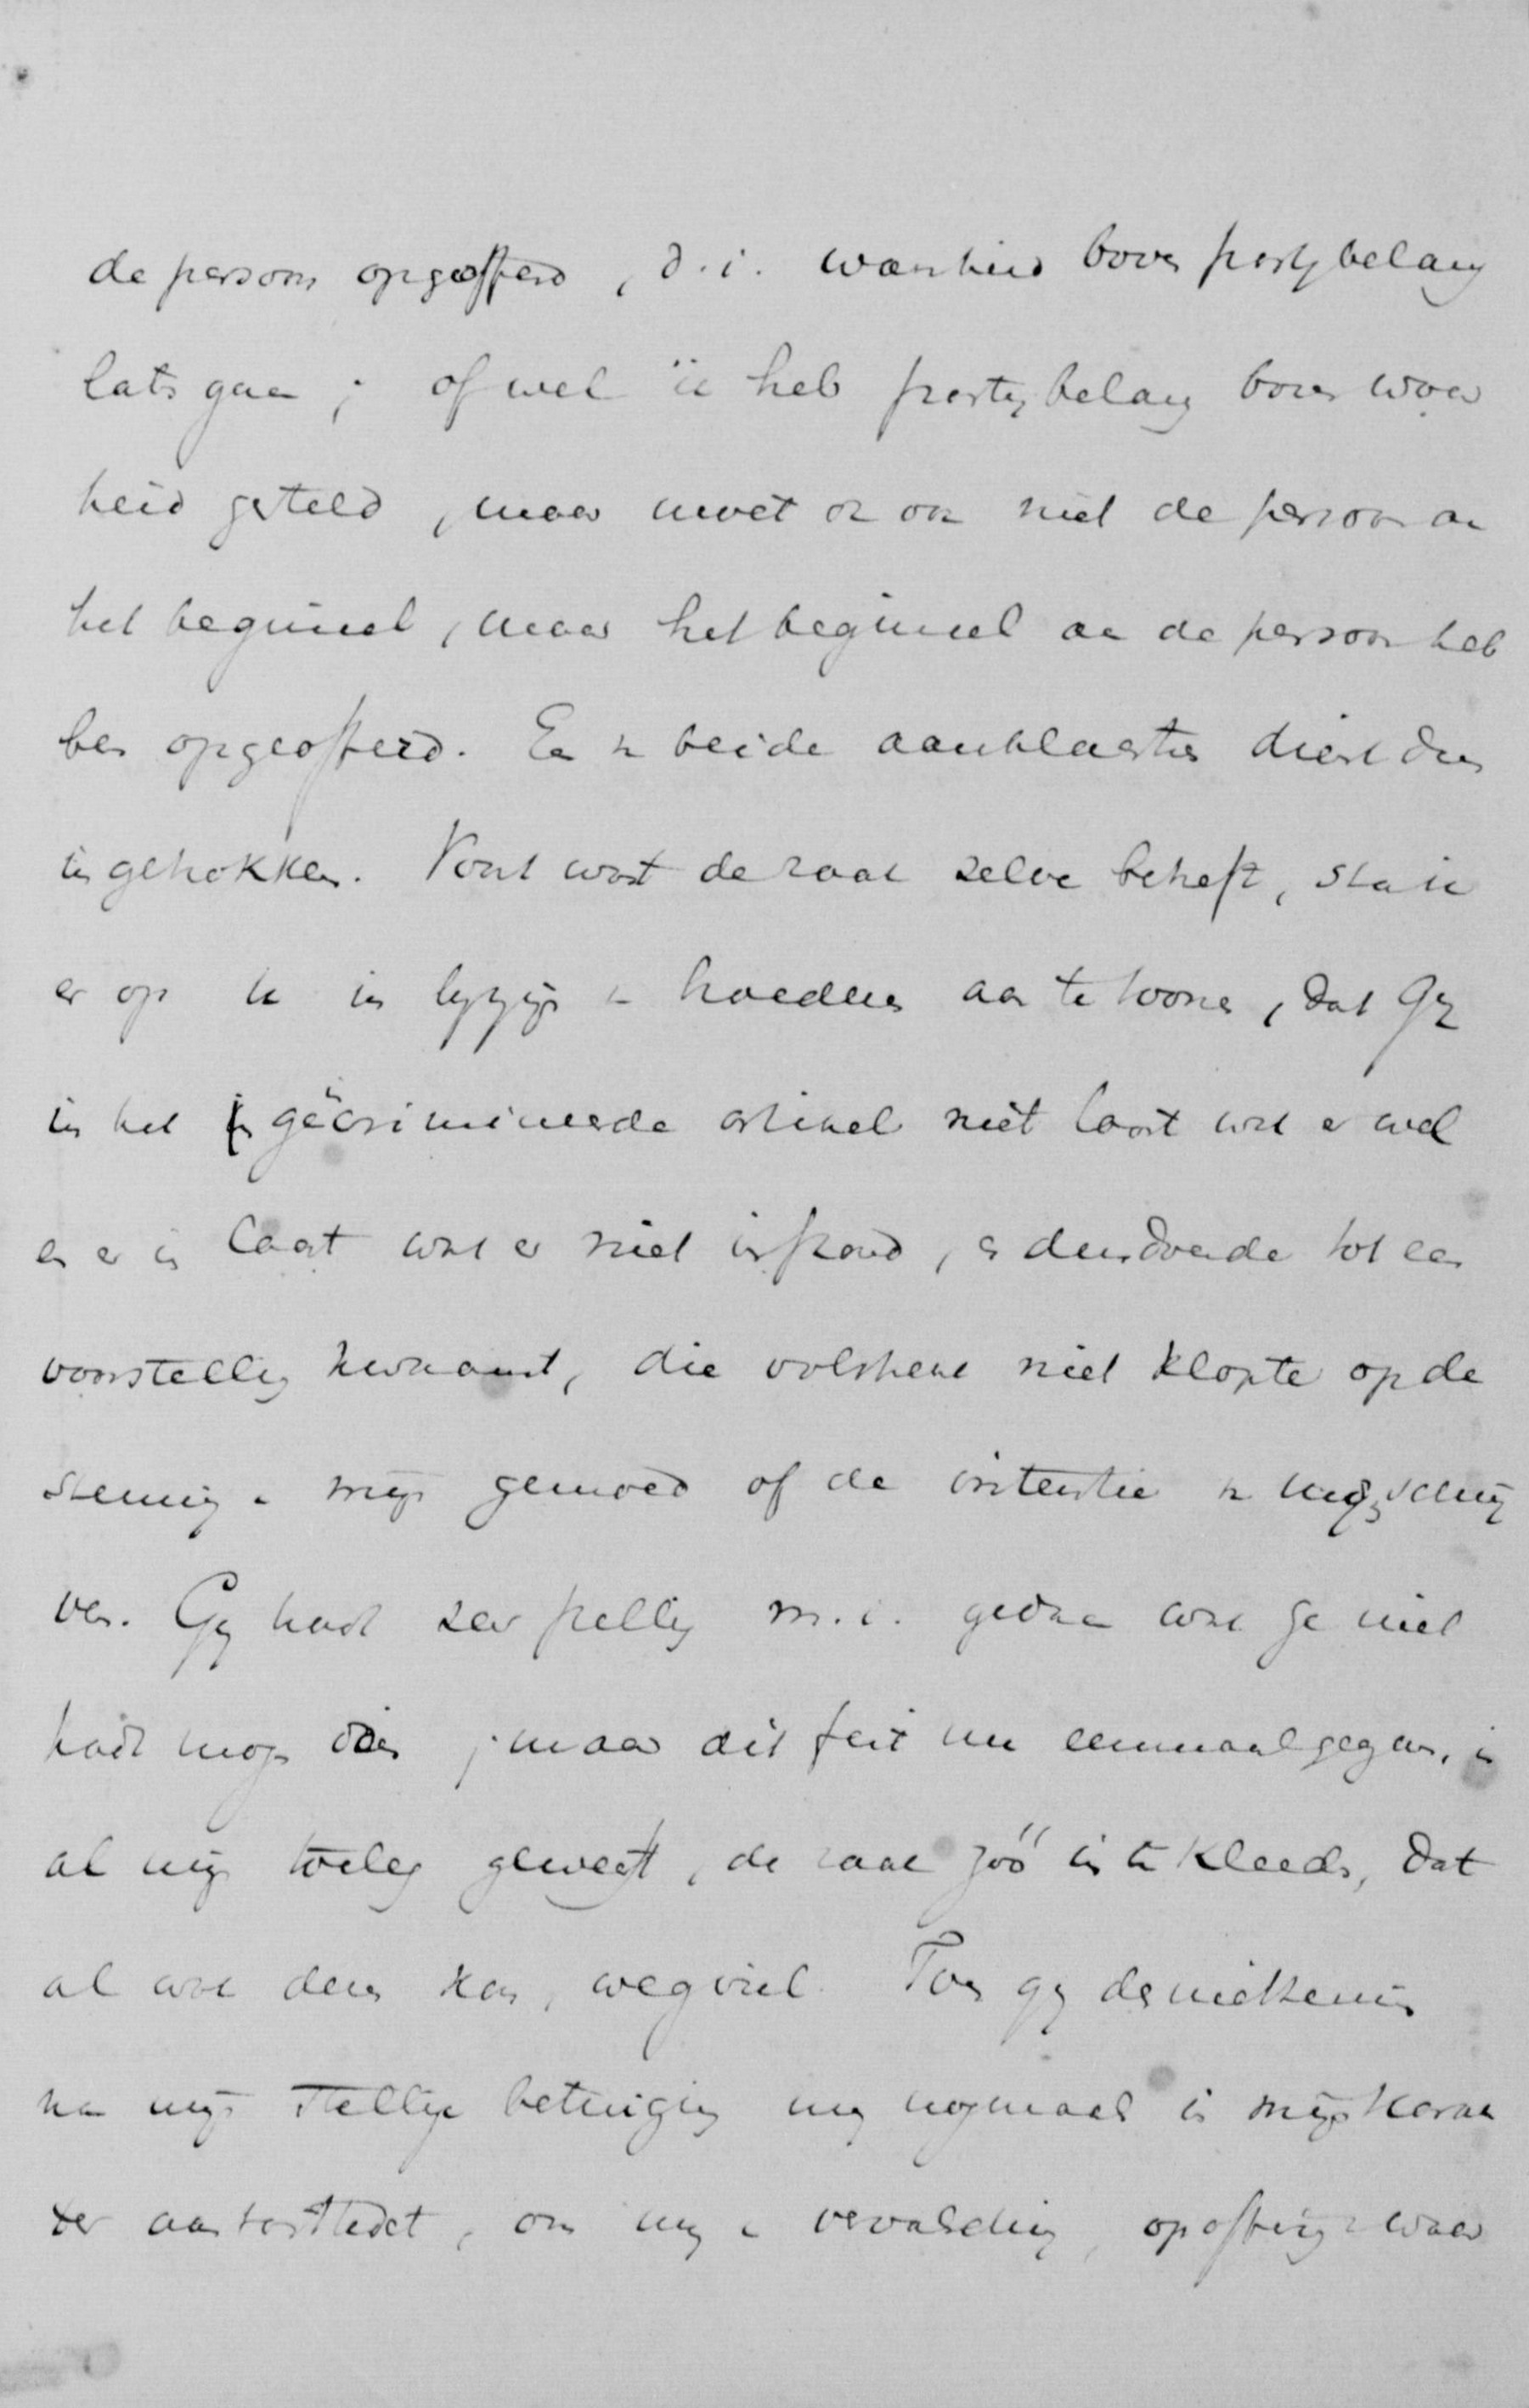 de persoon opgeofferd, d.i. waarheid boven partijbelang
laten gaan; ofwel ik heb partijbelang boven waar
heid gesteld, maar moet dan ook niet de persoon aan
het beginsel, maar het beginsel aan de persoon heb
ben opgeofferd. Een van beide aanklachten dient dus
ingetrokken. Voorts wat de zaak zelve betreft, sta ik
er op u in bijzijn van broeders aan te toonen, dat Gij
in het geïncrimineerde artikel niet laast wat er wel
en er in laast wat er niet in stond, en dusdoende tot een
voorstelling kwaamt, die volstrekt niet klopte op de
stemming van mijn gemoed of de intentie van mijn schrij
ven. Gij hadt zeer stellig m.i. gedaan wat ge niet
hadt mogen doen; maar dit feit nu eenmaal gegeven, is
al mijn toeleg geweest, de zaak zóó in te kleeden, dat
al wat deren kon, wegviel. Toen gij desniettemin
na mijn stellige betuiging mij nogmaals in mijn karak
ter aantasttedet, om mij van vervalsching, opoffering van waar